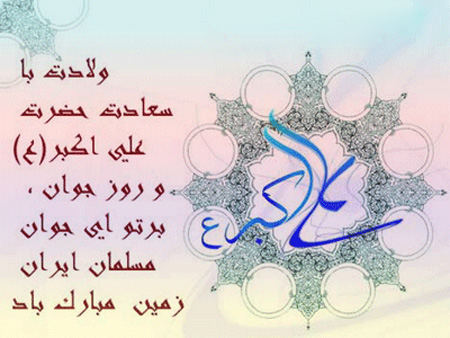 ولادت با
سعادت حضرت
علي اكبر(ع)
و روز جوان ،
برتو اي جوان
مسلمان ايران
زمين مبارك باد
علی اکبر ع